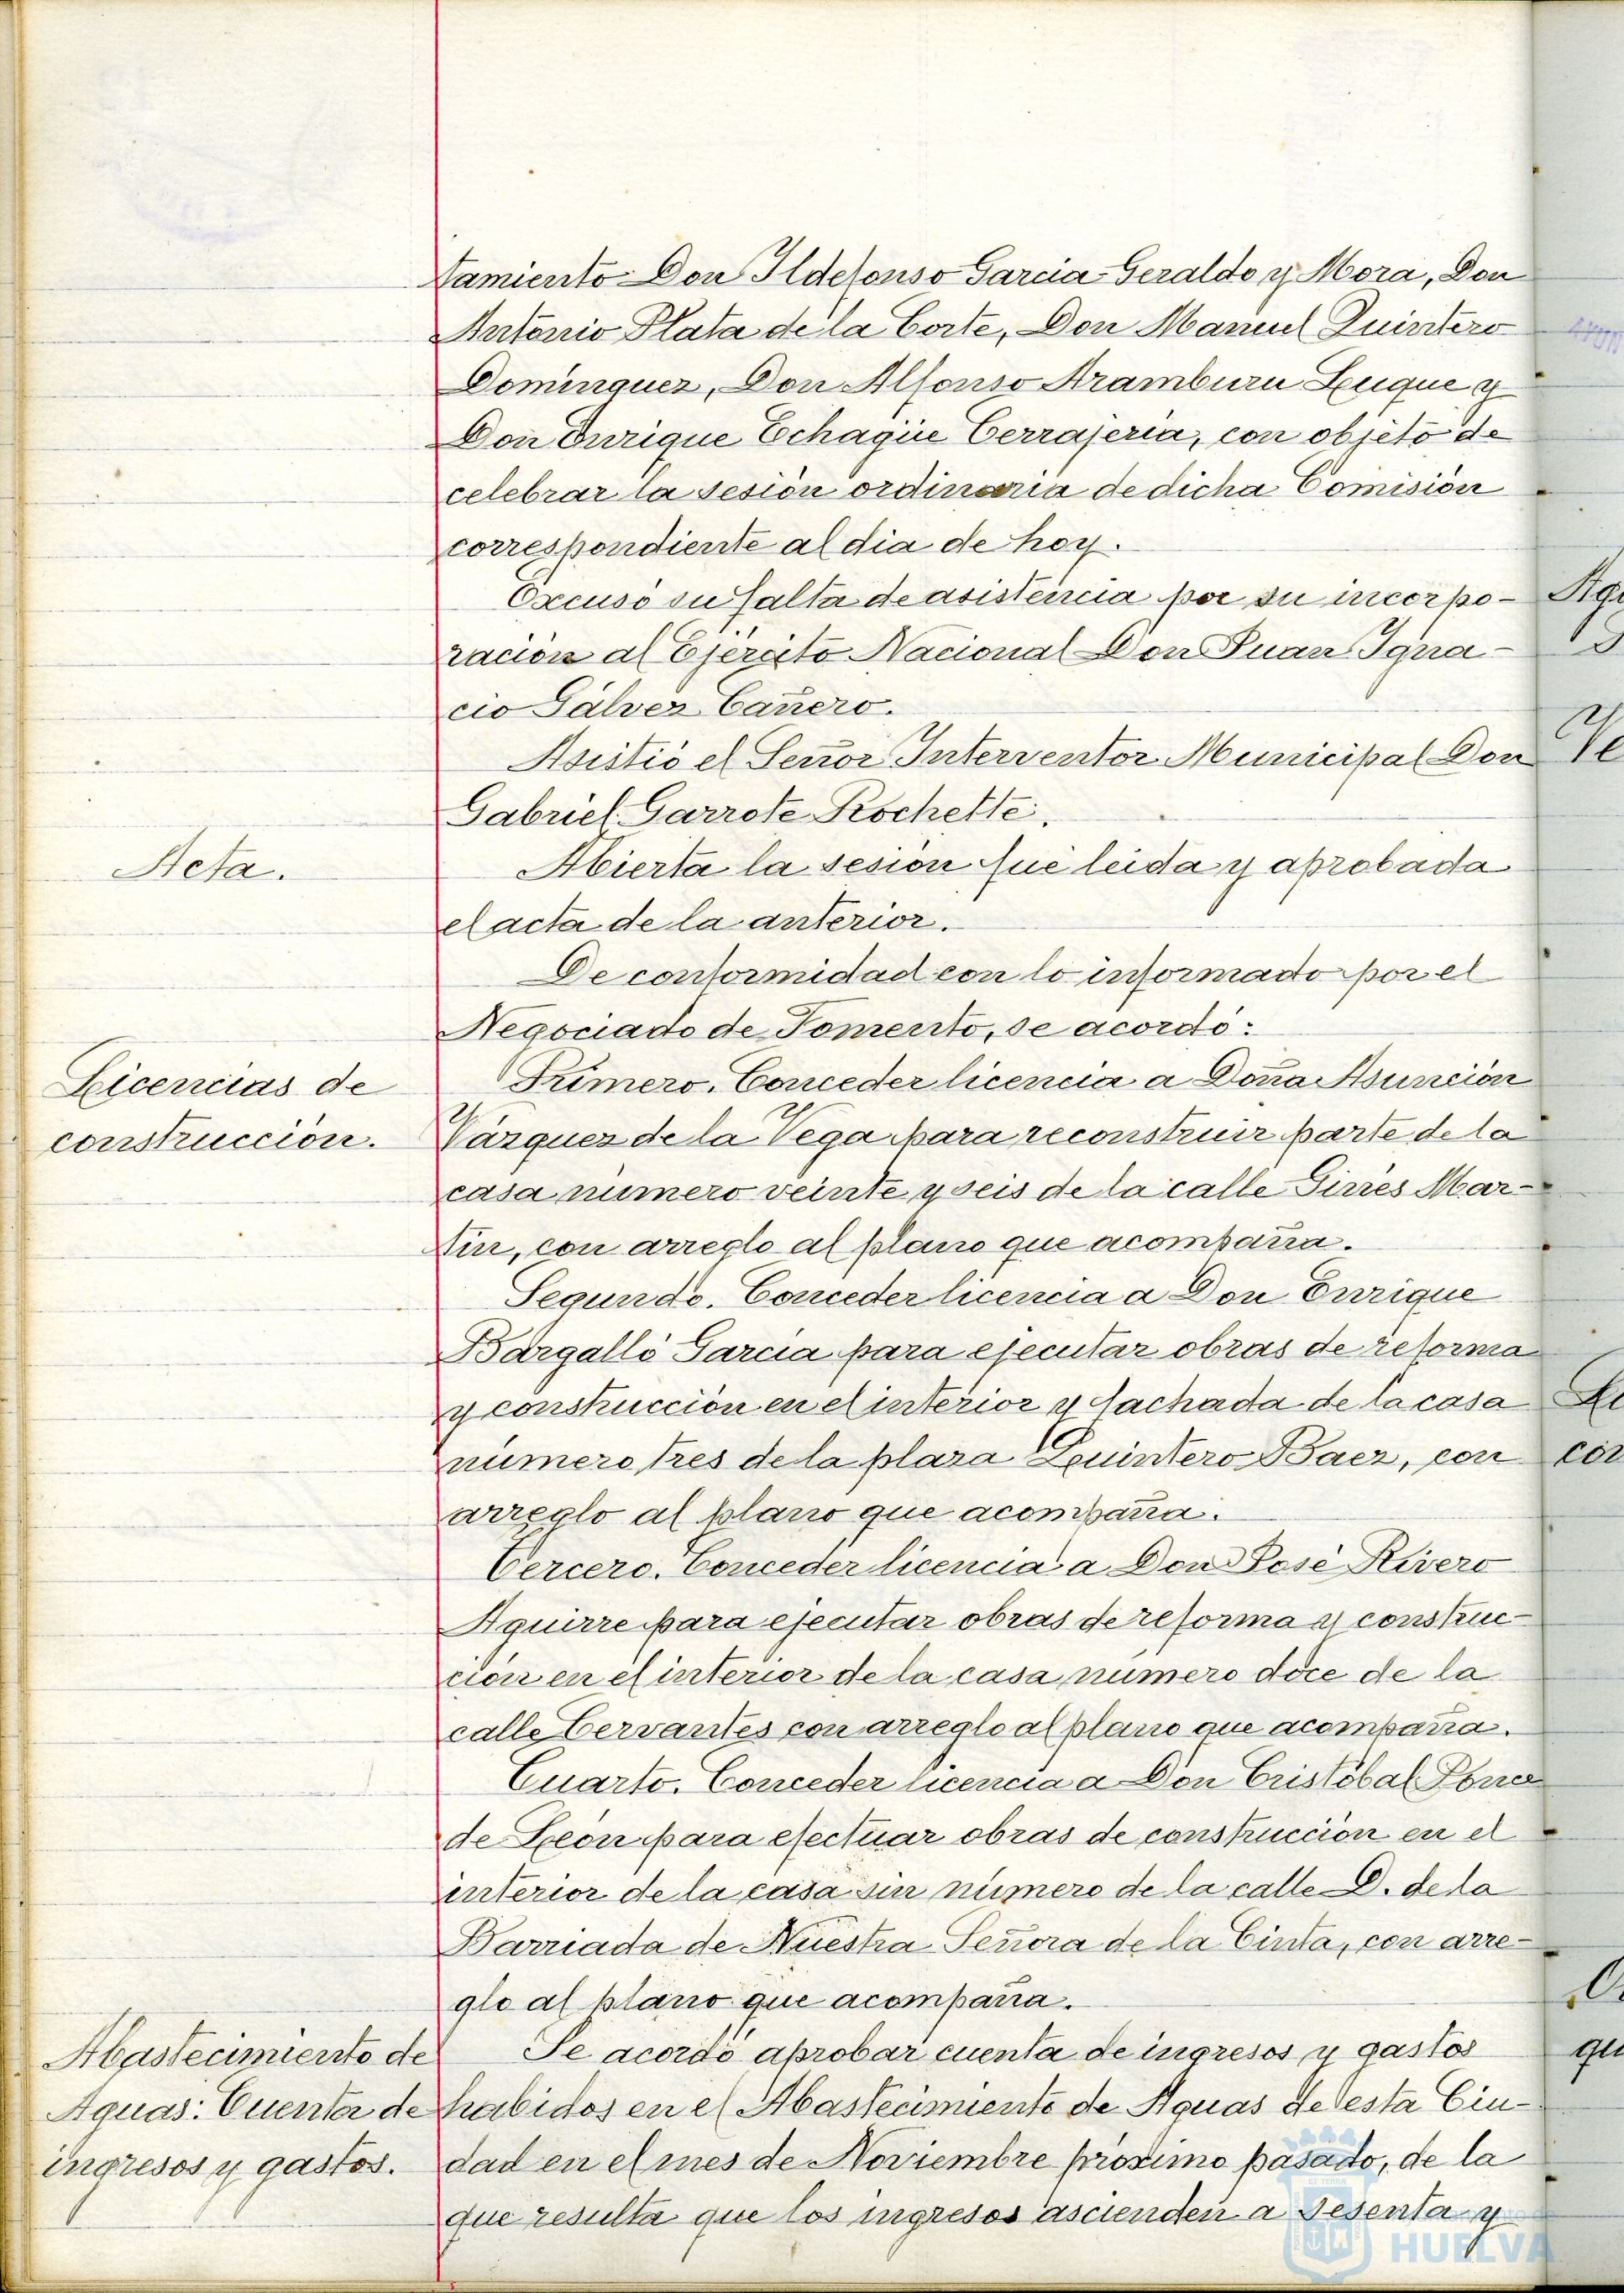 tamiento Don Ildefonso Garcia Geraldo y Mora, Don
Antonio Plata de la Corte, Don Manuel Quintero
Dominguez, Don Alfonso Aramburu Luque y
Don Enrique Echagüe Cerrajeria, con objeto de
celebrar la sesión ordinaria de dicha Comisión
correspondiente al dia de hoy.
Excusó su falta de asistencia por su incorpo-
ración al Ejército Nacional Don Juan Igna-
cio Gálvez Cañero.
Asistió el Señor Interventor Municipal Don
Gabriel Garrote Rochette.
Acta.
Abierta la sesión fué leida y aprobada
el acta de la anterior.
De conformidad con lo informado por el
Negociado de Fomento, se acordó:
Licencias de
construcción.
Primero. Conceder licencia a Doña Asunción
Vázquez de la Vega para reconstruir parte de la
casa número veinte y seis de la calle Ginés Mar-
tín, con arreglo al plano que acompaña.
Segundo. Conceder licencia a Don Enrique
Bargalló Garcia para ejecutar obras de reforma
y construcción en el interior y fachada de la casa
número tres de la plaza Quintero Baez, con
arreglo al plano que acompaña.
Tercero. Conceder licencia a Don José Rivero
Aguirre para ejecutar obras de reforma y construc-
ción en el interior de la casa número doce de la
calle Cervantes con arreglo al plano que acompaña.
Cuarto. Conceder licencia a Don Cristóbal Ponce
de León para efectuar obras de construcción en el
interior de la casa sin número de la calle D. de la
Barriada de Nuestra Señora de la Cinta, con arre-
glo al plano que acompaña.
Abastecimiento de
Aguas: Cuenta de
ingresos y gastos.
Se acordó aprobar cuenta de ingresos y gastos
habidos en el Abastecimiento de Aguas de esta Ciu-
dad en el mes de Noviembre próximo pasado, de la
que resulta que los ingresos ascienden a sesenta y
HUELVA